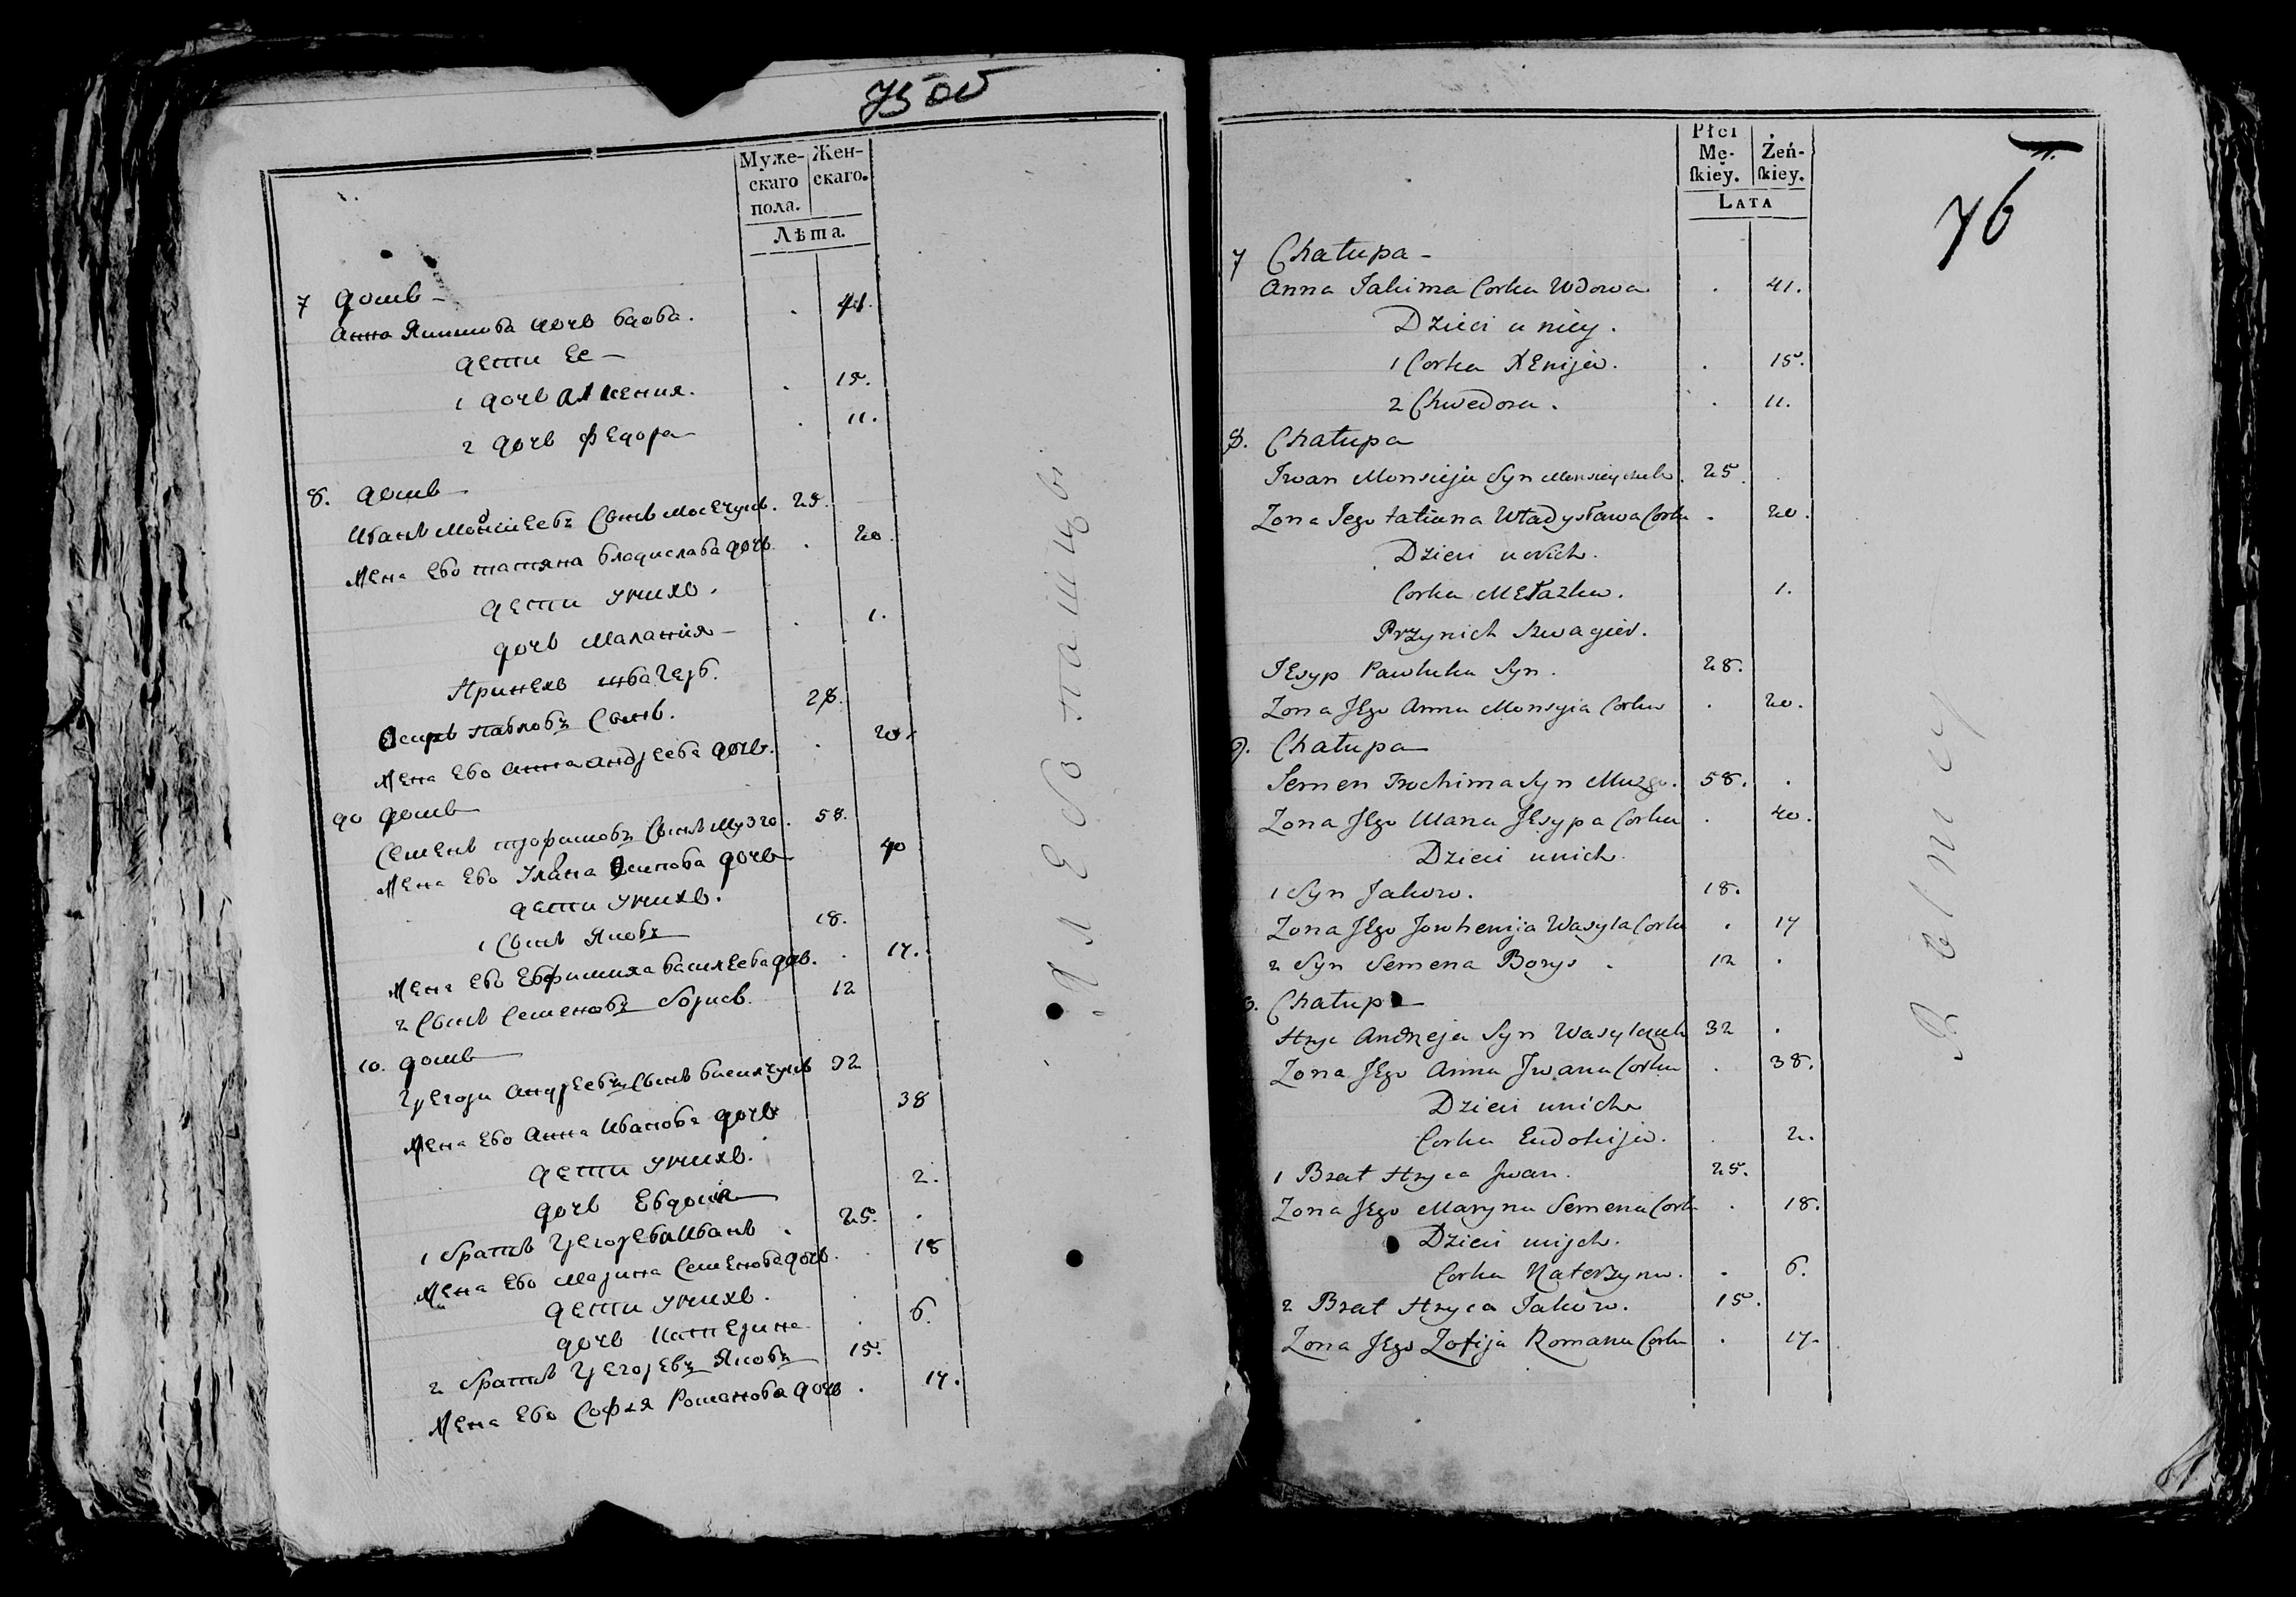 75 об
Муже-
скаго
пола.
Жен-
скаго.
Лѣта.
7 домъ
Анна Якимова дочь вдова. . 41.
дети ее
1 дочь Аксения. . 15.
2 дочь Федора . 11.
8. домъ
Иванъ Моисиевъ сынъ Мосейчукъ. 25.
Жена ево татяна владислава дочь . 20.
дети унихъ.
дочь Малания . 1.
Принехъ швагеръ.
Осипъ Павловъ сынъ. 28.
Жена ево анна андреева дочь. . 20.
90 домъ
Семенъ трофимовъ сынъ Музго. 58.
Жена ево Уляна Осипова дочь 40
дети унихъ.
1 сынъ Яковъ 18.
Жена ево Евфимия васильева дочь. . 17.
2 сынъ Семеновъ борисъ. 12
10. домъ
Грегори андреевъ сынъ василчукъ 32
Жена ево анна Иванова дочь 38
дети унихъ.
дочь Евдокия 2.
1 братъ Грегорева Иванъ . 25.
Жена ево Марина Семенова дочь. . 18
дети унихъ.
дочь Катерина . 6.
2 братъ Грегоревъ Яковъ 15.
Жена ево Софья Романова дочь . 17.
76
Płci
Mę-
ſkiey.
Żeń-
ſkiey.
Lata
7 Chałupa
Anna Jakima Corka Wdowa . 41.
Dzieci u niey.
1 Corka Xenija. . 15.
2 Chwedora. . 11.
8. Chałupa
Iwan Monsieja Syn Monsieyczuk. 25.
Zona Jego tatiana Władysława Corka . 20.
Dzieci unich.
Corka Mełazka. 1.
Przynich Szwagier.
Jesyp Pawluka Syn. 28.
Zona Jego Anna Monsyia Corka . 20.
9. Chałupa
Semen Trochima Syn Muzgo. 58. .
Zona Jego Ulana Jesypa Corka . 40.
Dzieci unich.
1 Syn Jakow. 18.
Zona Jego Jowhenija Wasyla Corka . 17
2 Syn Semena Borys . 12 .
Chałupa
Hryc Andreja Syn Wasylczuk 32 .
Zona Jego Anna Jwana Corka . 38.
Dzieci unich
Corka Eudokija. . 2.
1 Brat Hryca Jwan. 25.
Zona Jego Maryna Semena Corka . 18.
Dzieci unich.
Corka Katerzyna. . 6.
2 Brat Hryca Jakow. 15.
Zona Jego Zofija Romana Corka . 17.